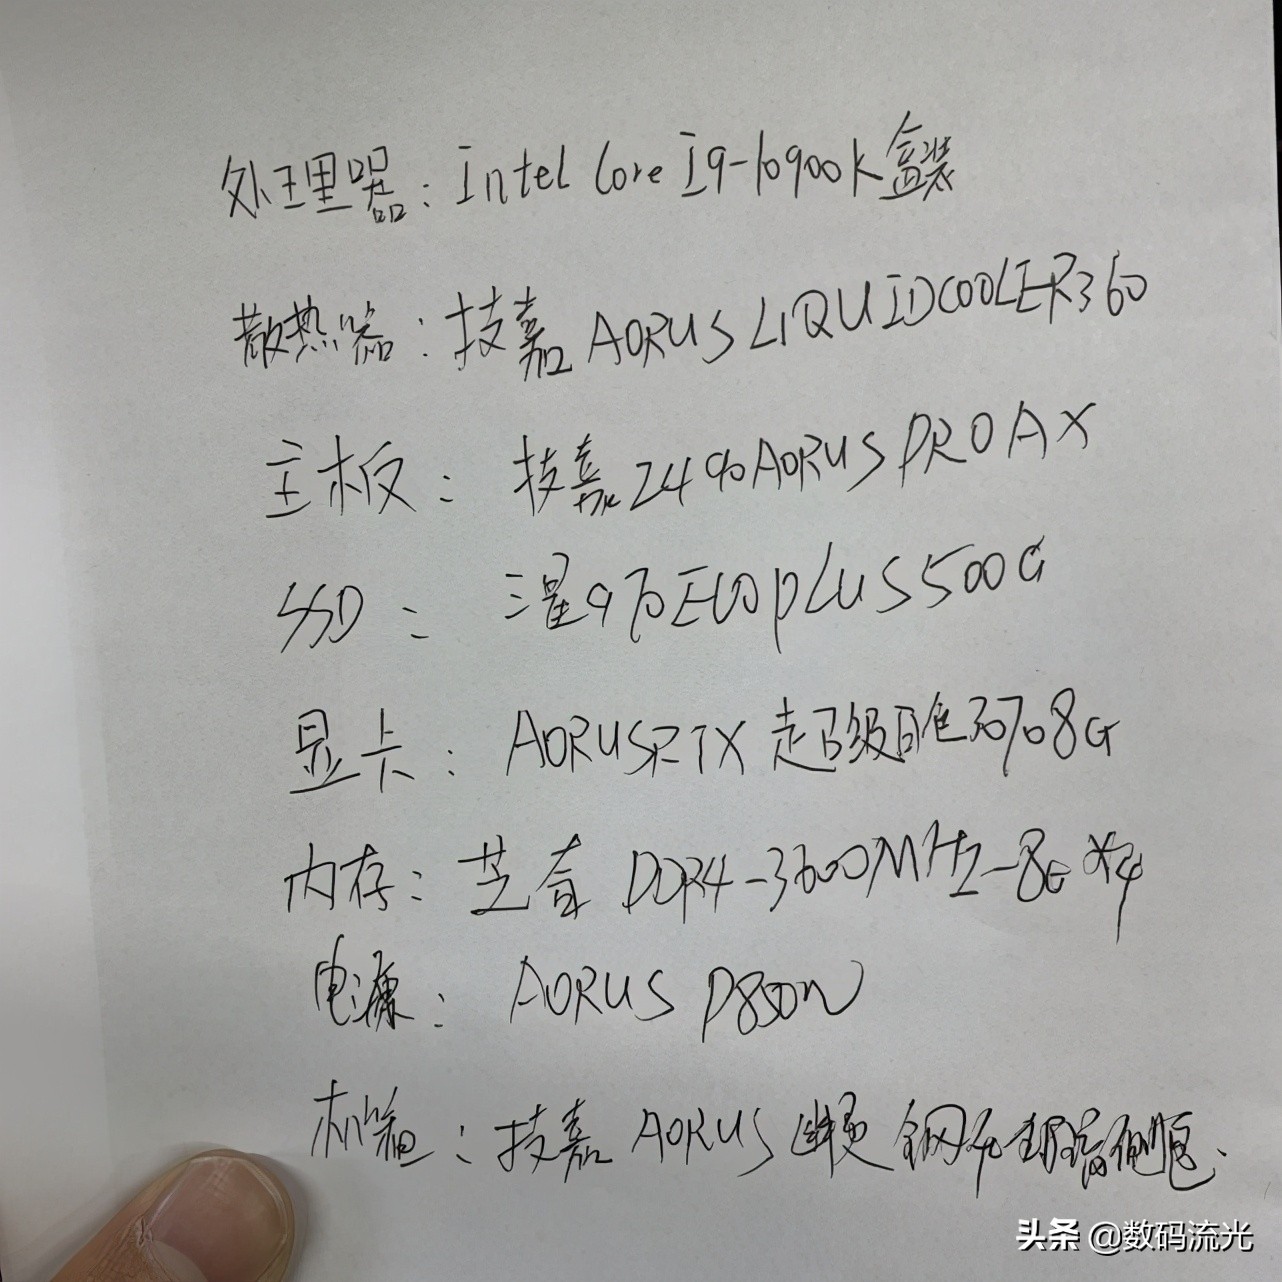 处理器：Intel Core I9-10900K盒装
散热器：技嘉 AORUS LIQUIDCOOLER360
主板：技嘉Z490AORUS PRO AX
SSD：三星970EVOPLUS500G
显卡：AORUSRTX 超级雕3070 8G
内存：芝奇 DDR4-3600MHZ-8G×4
电源：AORUS P850W
机箱：技嘉 AORUS 钢化玻璃侧
头条 @数码流光